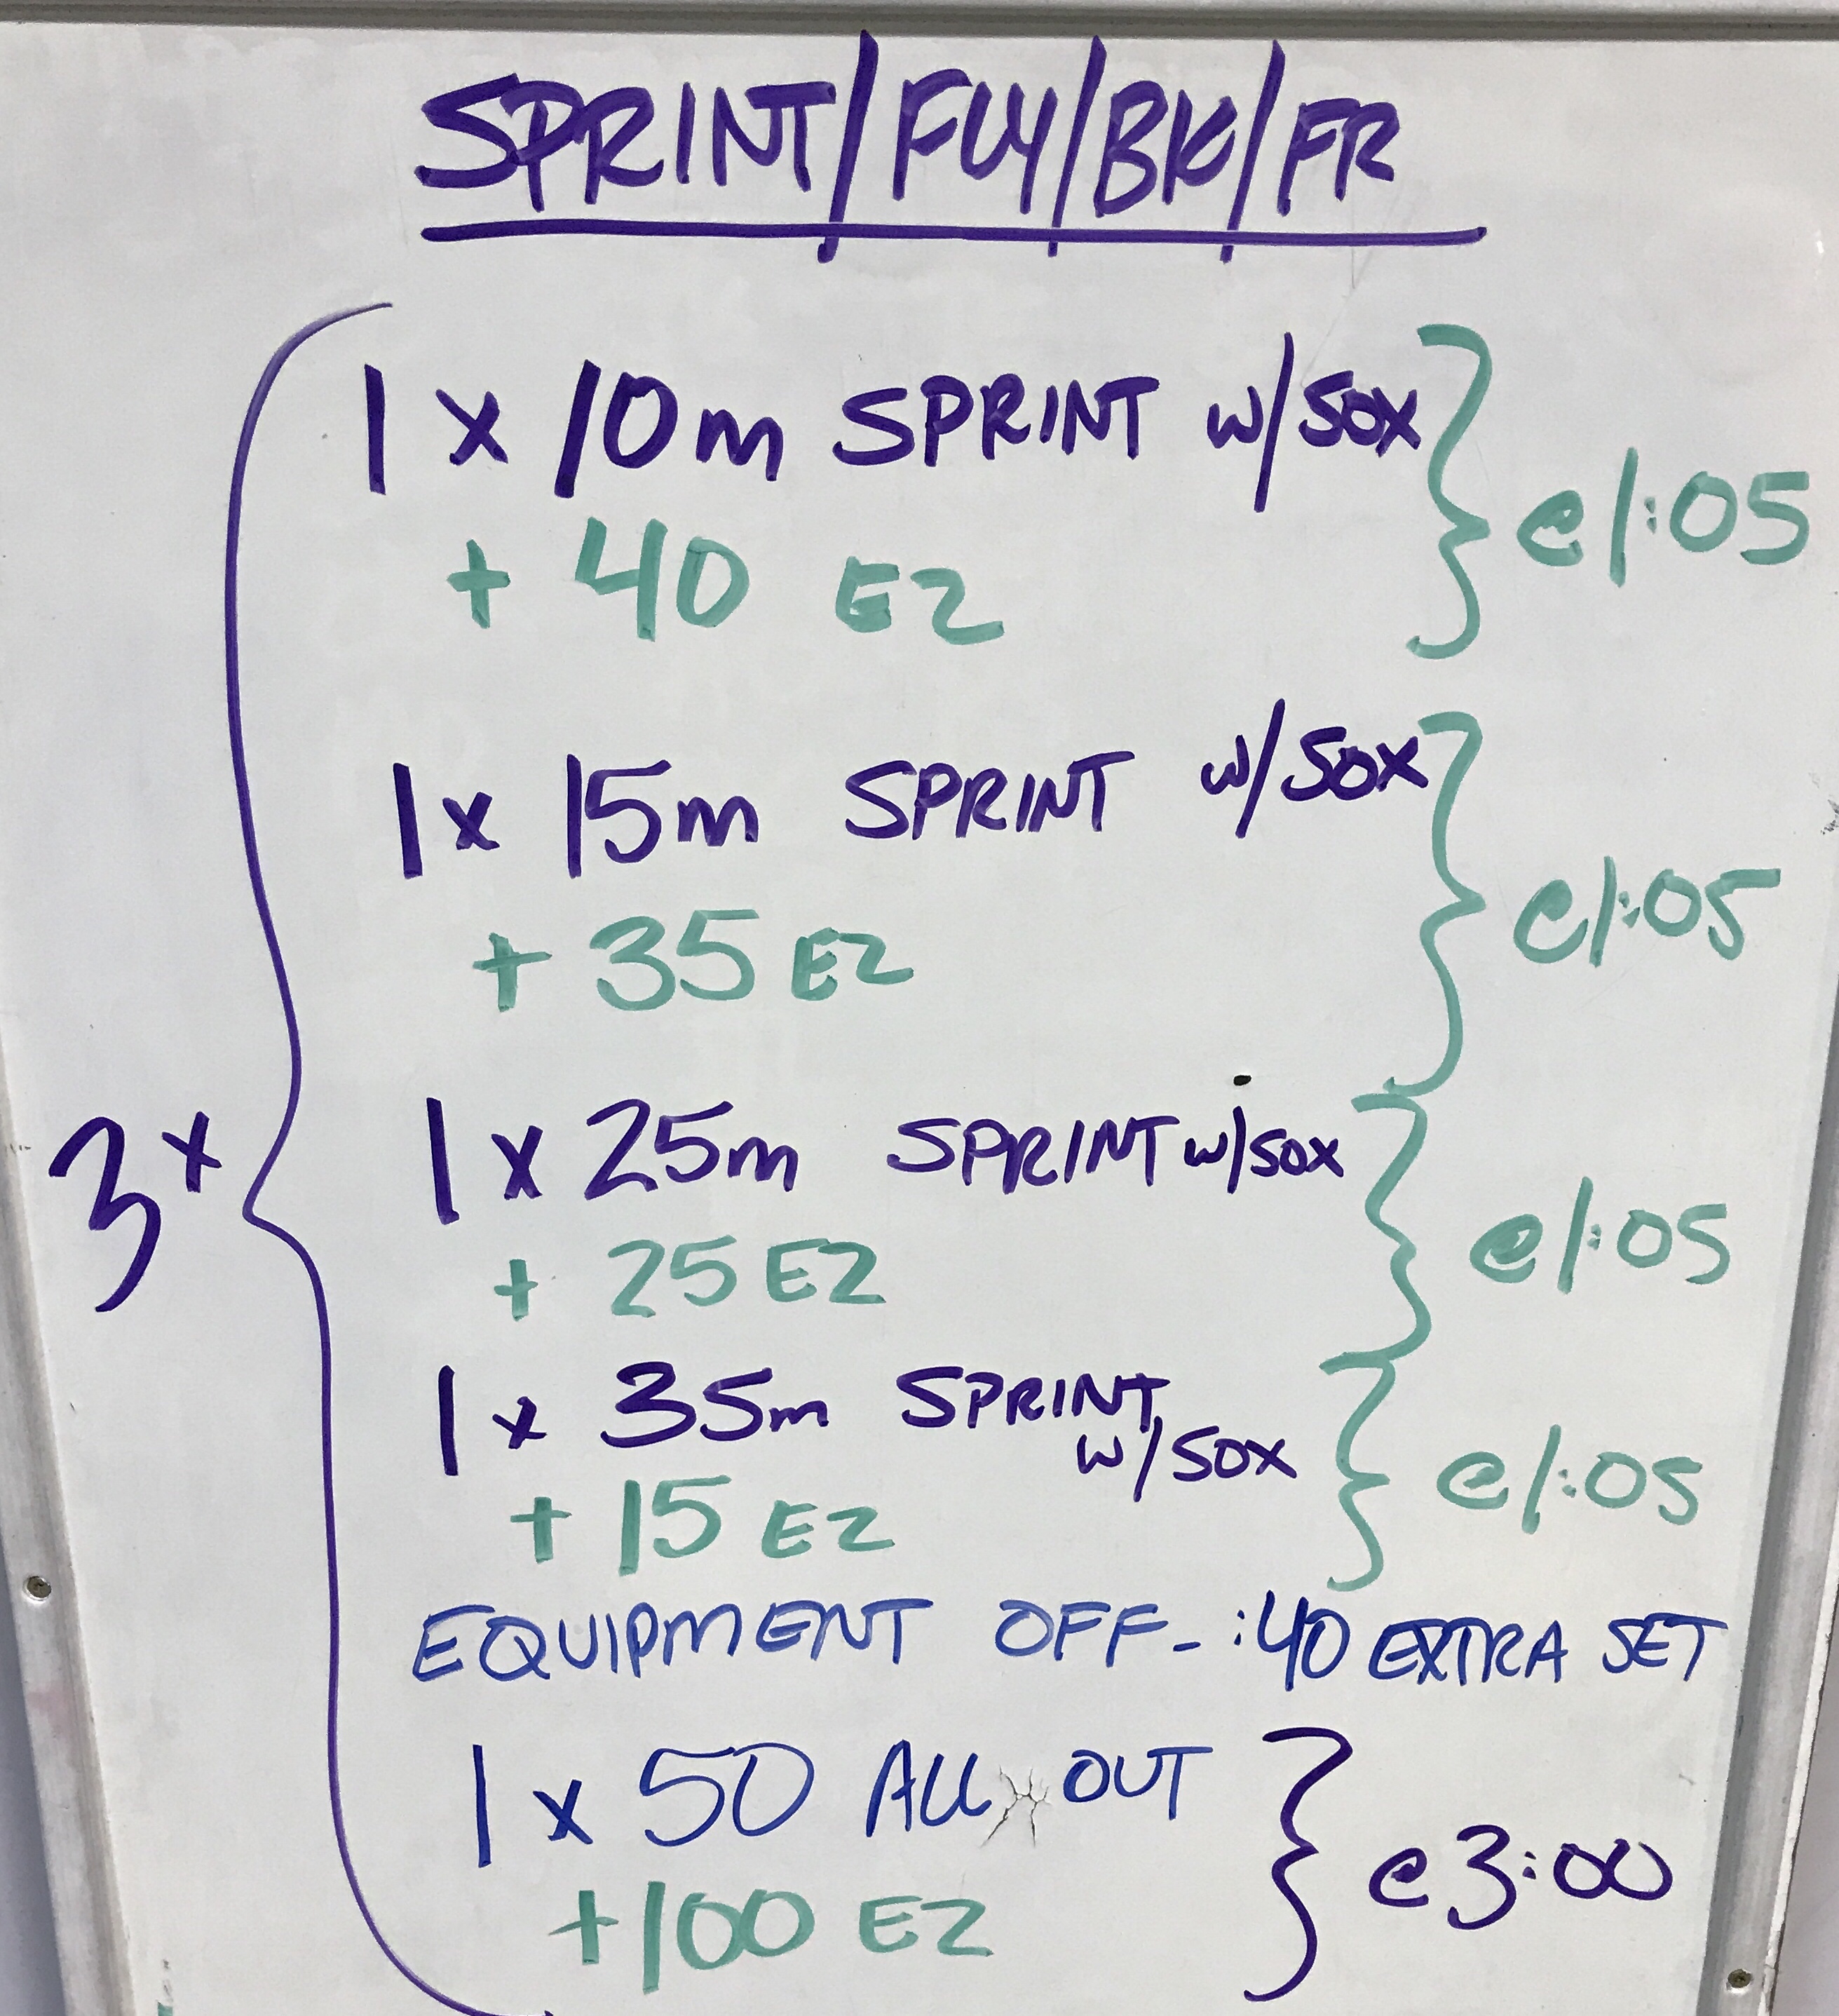 SPRINT/FLY/BK/FR
1 x 10m SPRINT w/SOX
+ 40 EZ
e1:05
1 x 15m SPRINT w/SOX
+ 35 EZ
e1:05
3x
1 x 25m SPRINT w/SOX
+ 25 EZ
e1:05
1 x 35m SPRINT
w/SOX
+ 15 EZ
e1:05
EQUIPMENT OFF - :40 EXTRA SET
1 x 50 ALL OUT
+100 EZ
e3:00